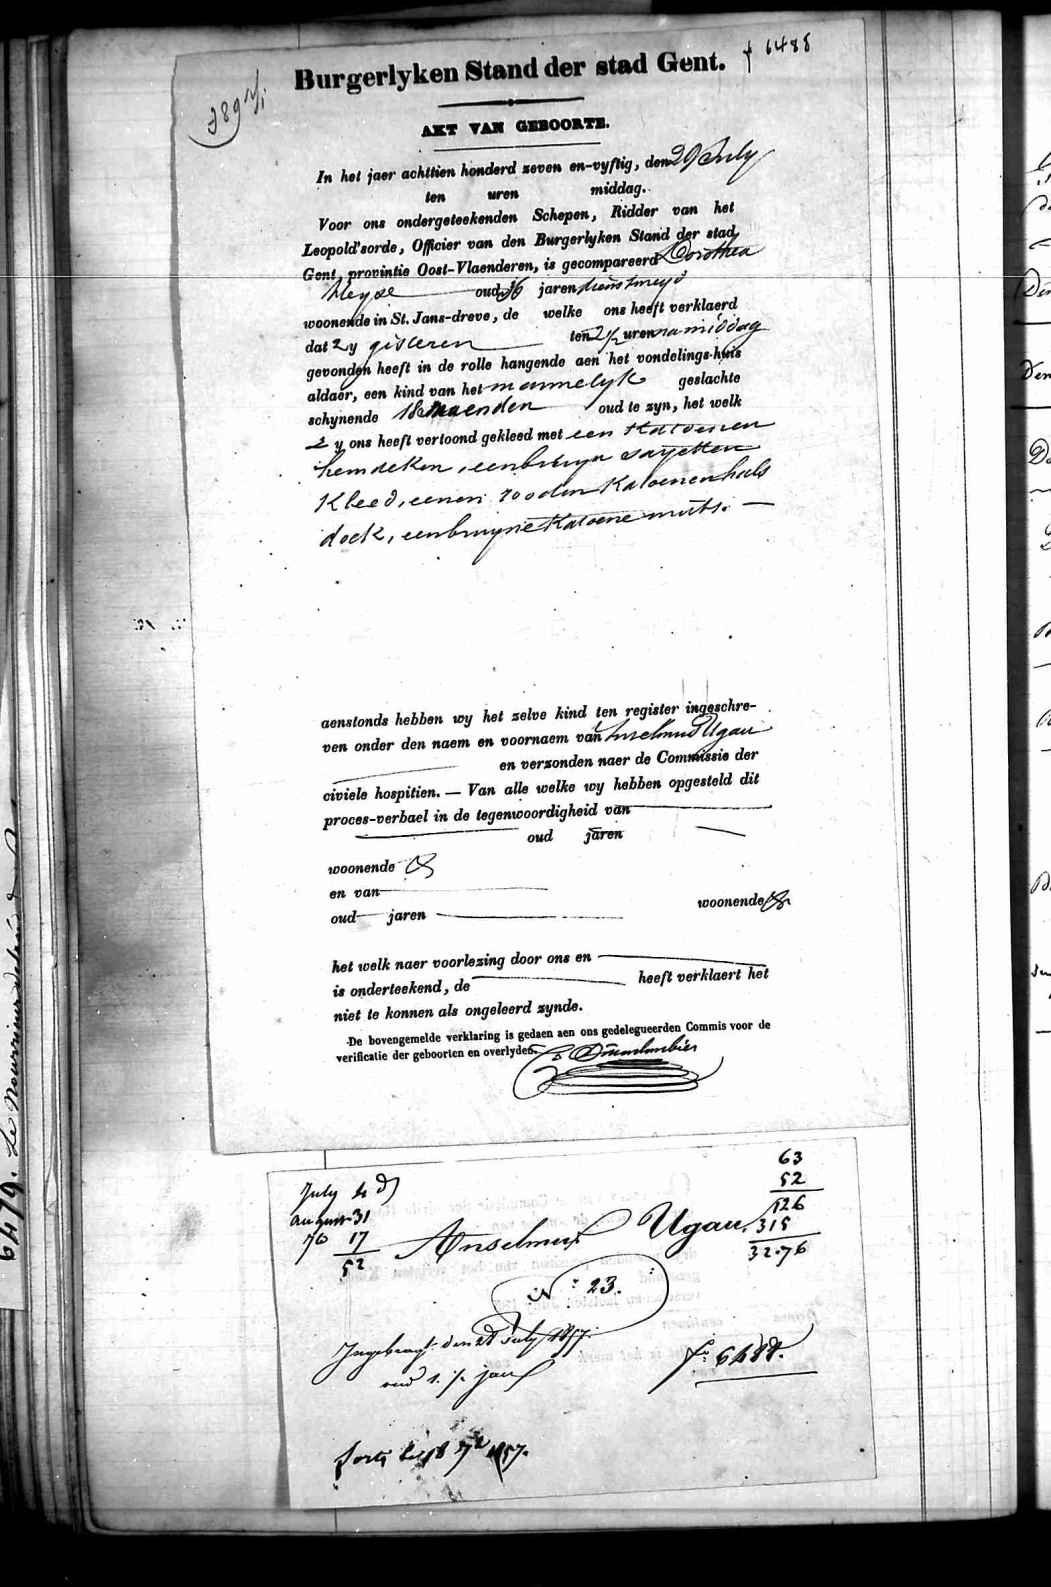 Burgerlyken Stand der stad Gent.
f 6488
389
AKT VAN GEBOORTE.
In het jaer achttien honderd zeven en-vyftig, den 29 July
ten uren middag.
Voor ons ondergeteekenden Schepen, Ridder van het
Leopold'sorde, Officier van den Burgerlyken Stand der stad
Gent, provintie Oost-Vlaenderen, is gecompareerd Dorothea
Heyse oud 36 jaren dienstmeyd
woonende in St. Jans-dreve, de welke ons heeft verklaerd
dat zy gisteren ten 2 1/2 uren namiddag
gevonden heeft in de rolle hangende aen het vondelings-huis
aldaer, een kind van het mannelyk geslachte
schynende 18 maenden oud te zyn, het welk
zy ons heeft vertoond gekleed met een katoenen
hemdeken, een bruyn sayetten
kleed, eenen rooden katoenen hals
doek, een bruyne katoene muts. —
aenstonds hebben wy het zelve kind ten register ingeschre-
ven onder den naem en voornaem van Anselmus Ugau
en verzonden naer de Commissie der
civiele hospitien. — Van alle welke wy hebben opgesteld dit
proces-verbael in de tegenwoordigheid van
oud jaren
woonende
en van
oud jaren woonende
het welk naer voorlezing door ons en
is onderteekend, de heeft verklaert het
niet te konnen als ongeleerd zynde.
De bovengemelde verklaring is gedaen aen ons gedelegueerden Commis voor de
verificatie der geboorten en overlyden.
63
52
126
315
32.76
July 4 d
august 31
7b 17
52
Anselmus Ugau
N° 23.
Ingebragt den 28 July 1857.
oud 1. 1/2 jaer
f° 6488.
sorti le 18 7b 1857.
6479.